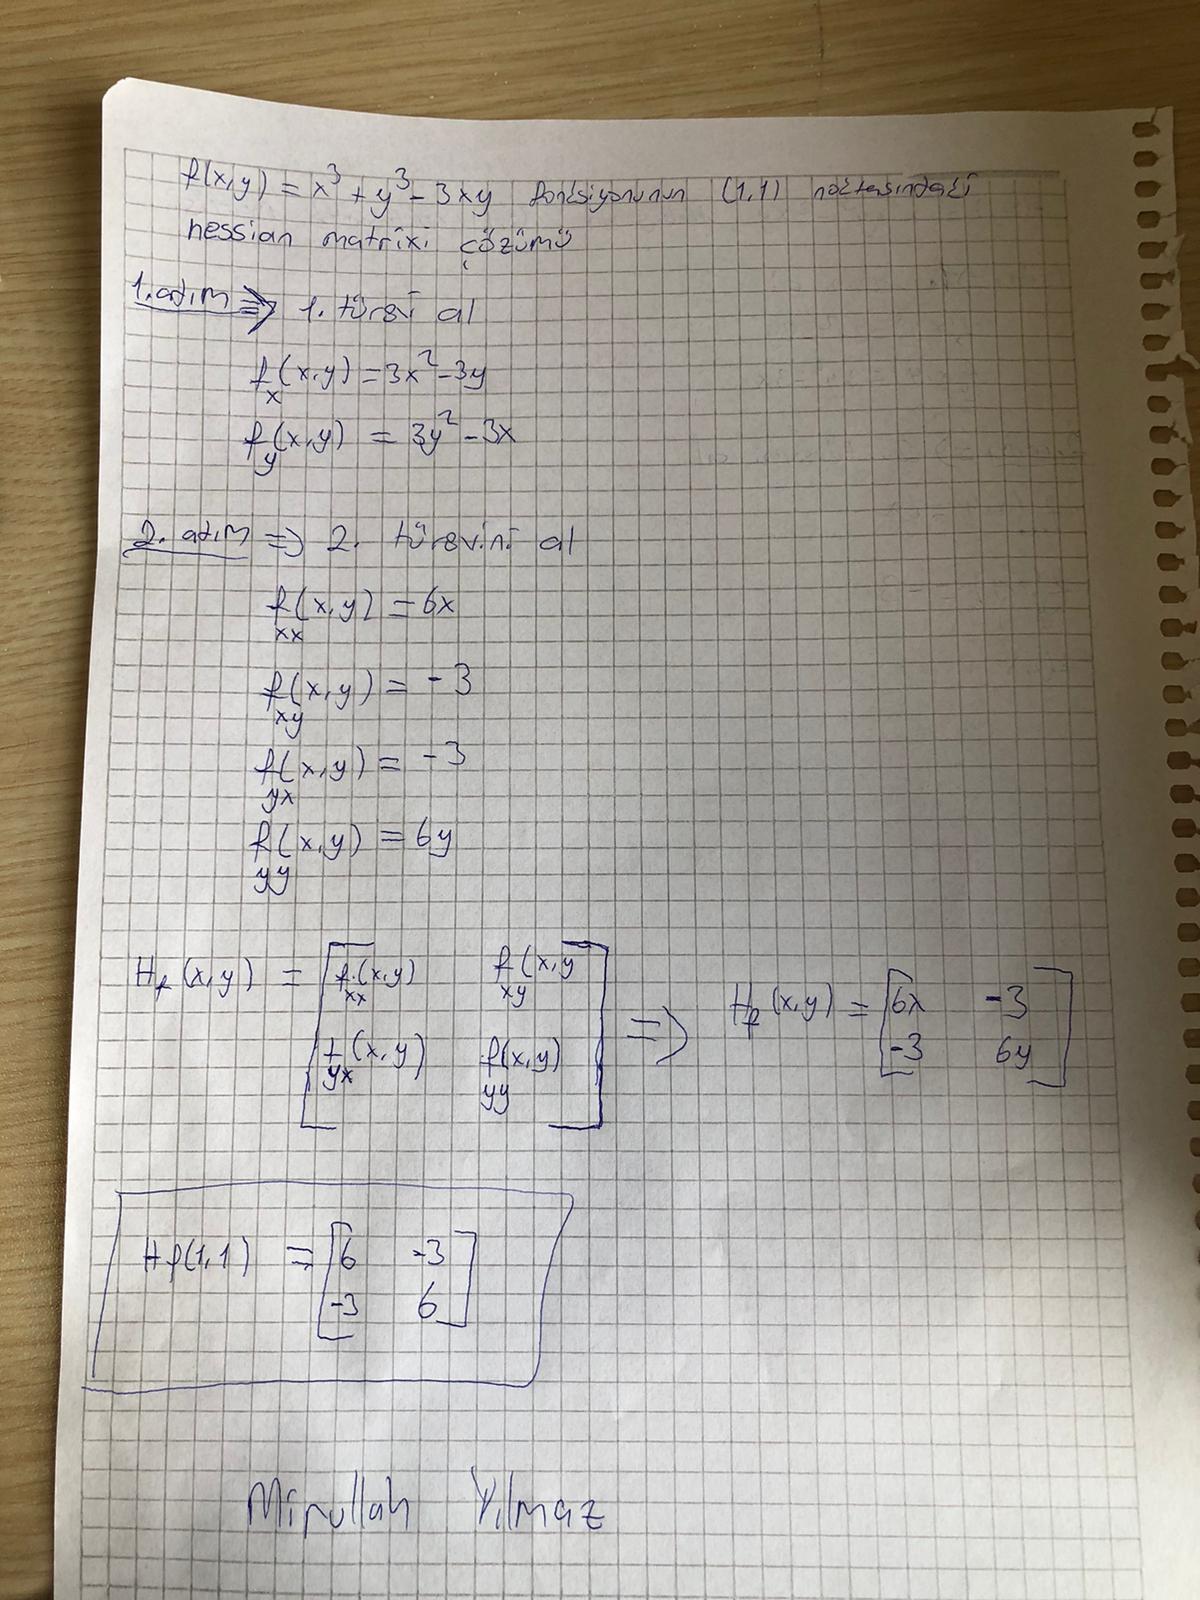 f(x,y) = x³ + y³ - 3xy fonksiyonunun (1,1) noktasındaki
hessian matrixi çözümü
1. adım => 1. türevi al
f_x(x,y) = 3x² - 3y
f_y(x,y) = 3y² - 3x
2. adım => 2. türevini al
f_xx(x,y) = 6x
f_xy(x,y) = -3
f_yx(x,y) = -3
f_yy(x,y) = 6y
H_f(x,y) = [f_xx(x,y) f_xy(x,y
f_yx(x,y) f_yy(x,y)] => H_f(x,y) = [6x -3
-3 6y]
Hf(1,1) = [6 -3
-3 6]
Mirullah Yılmaz